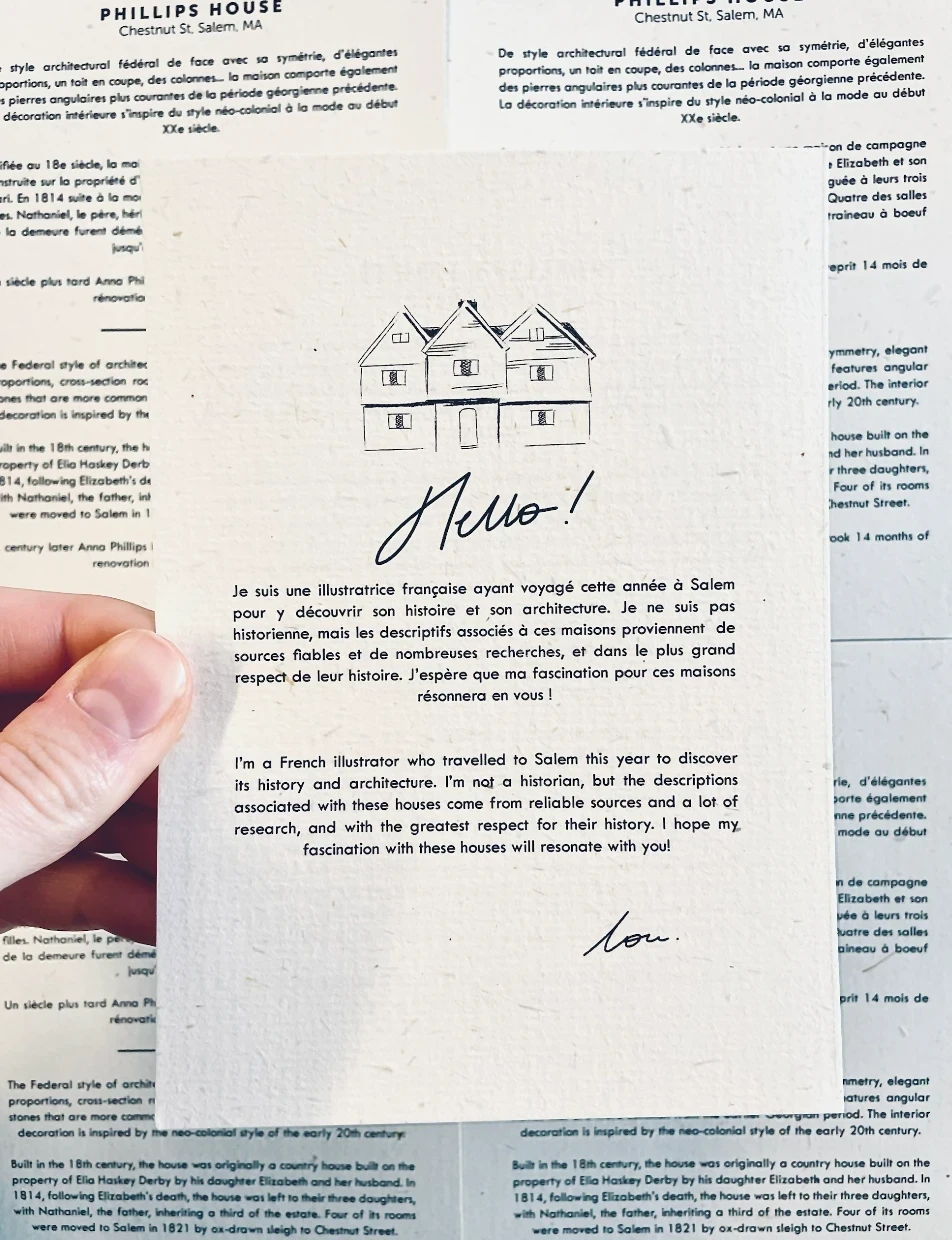 PHILLIPS HOUSE
Chestnut St, Salem, MA
style architectural fédéral de face avec sa symétrie, d'élégantes
proportions, un toit en coupe, des colonnes... la maison comporte également
pierres angulaires plus courantes de la période géorgienne précédente.
décoration intérieure s'inspire du style néo-colonial à la mode au début
XXe siècle.
au 18e siècle, la
sur la propriété
En 1814 suite à la
Nathaniel, le père,
la demeure furent
siècle plus tard Anna
Federal style of
proportions, cross-section
stones that are more common
decoration is inspired by the
in the 18th century, the
property of Elia Haskey
1814, following Elizabeth's
with Nathaniel, the father,
were moved to Salem in
century later Anna Phillips
renovation
PHILLIPS HOUSE
Chestnut St, Salem, MA
De style architectural fédéral de face avec sa symétrie, d'élégantes
proportions, un toit en coupe, des colonnes... la maison comporte également
des pierres angulaires plus courantes de la période géorgienne précédente.
La décoration intérieure s'inspire du style néo-colonial à la mode au début
XXe siècle.
de campagne
Elizabeth et son
à leurs trois
Quatre des salles
traineau à boeuf
14 mois de
symmetry, elegant
features angular
period. The interior
early 20th century.
house built on the
and her husband. In
three daughters,
Four of its rooms
Chestnut Street.
took 14 months of
Hello!
Je suis une illustratrice française ayant voyagé cette année à Salem
pour y découvrir son histoire et son architecture. Je ne suis pas
historienne, mais les descriptifs associés à ces maisons proviennent de
sources fiables et de nombreuses recherches, et dans le plus grand
respect de leur histoire. J'espère que ma fascination pour ces maisons
résonnera en vous !
I'm a French illustrator who travelled to Salem this year to discover
its history and architecture. I'm not a historian, but the descriptions
associated with these houses come from reliable sources and a lot of
research, and with the greatest respect for their history. I hope my
fascination with these houses will resonate with you!
Lou.
filles. Nathaniel, le
de la demeure furent
Un siècle plus tard Anna
The Federal style of
proportions, cross-section
stones that are more
decoration is inspired by the neo-colonial style of the early 20th century.
Built in the 18th century, the house was originally a country house built on the
property of Elia Haskey Derby by his daughter Elizabeth and her husband. In
1814, following Elizabeth's death, the house was left to their three daughters,
with Nathaniel, the father, inheriting a third of the estate. Four of its rooms
were moved to Salem in 1821 by ox-drawn sleigh to Chestnut Street.
d'élégantes
également
précédente.
mode au début
de campagne
Elizabeth et son
à leurs trois
Quatre des salles
traineau à boeuf
14 mois de
symmetry, elegant
features angular
Georgian period. The interior
decoration is inspired by the neo-colonial style of the early 20th century.
Built in the 18th century, the house was originally a country house built on the
property of Elia Haskey Derby by his daughter Elizabeth and her husband. In
1814, following Elizabeth's death, the house was left to their three daughters,
with Nathaniel, the father, inheriting a third of the estate. Four of its rooms
were moved to Salem in 1821 by ox-drawn sleigh to Chestnut Street.